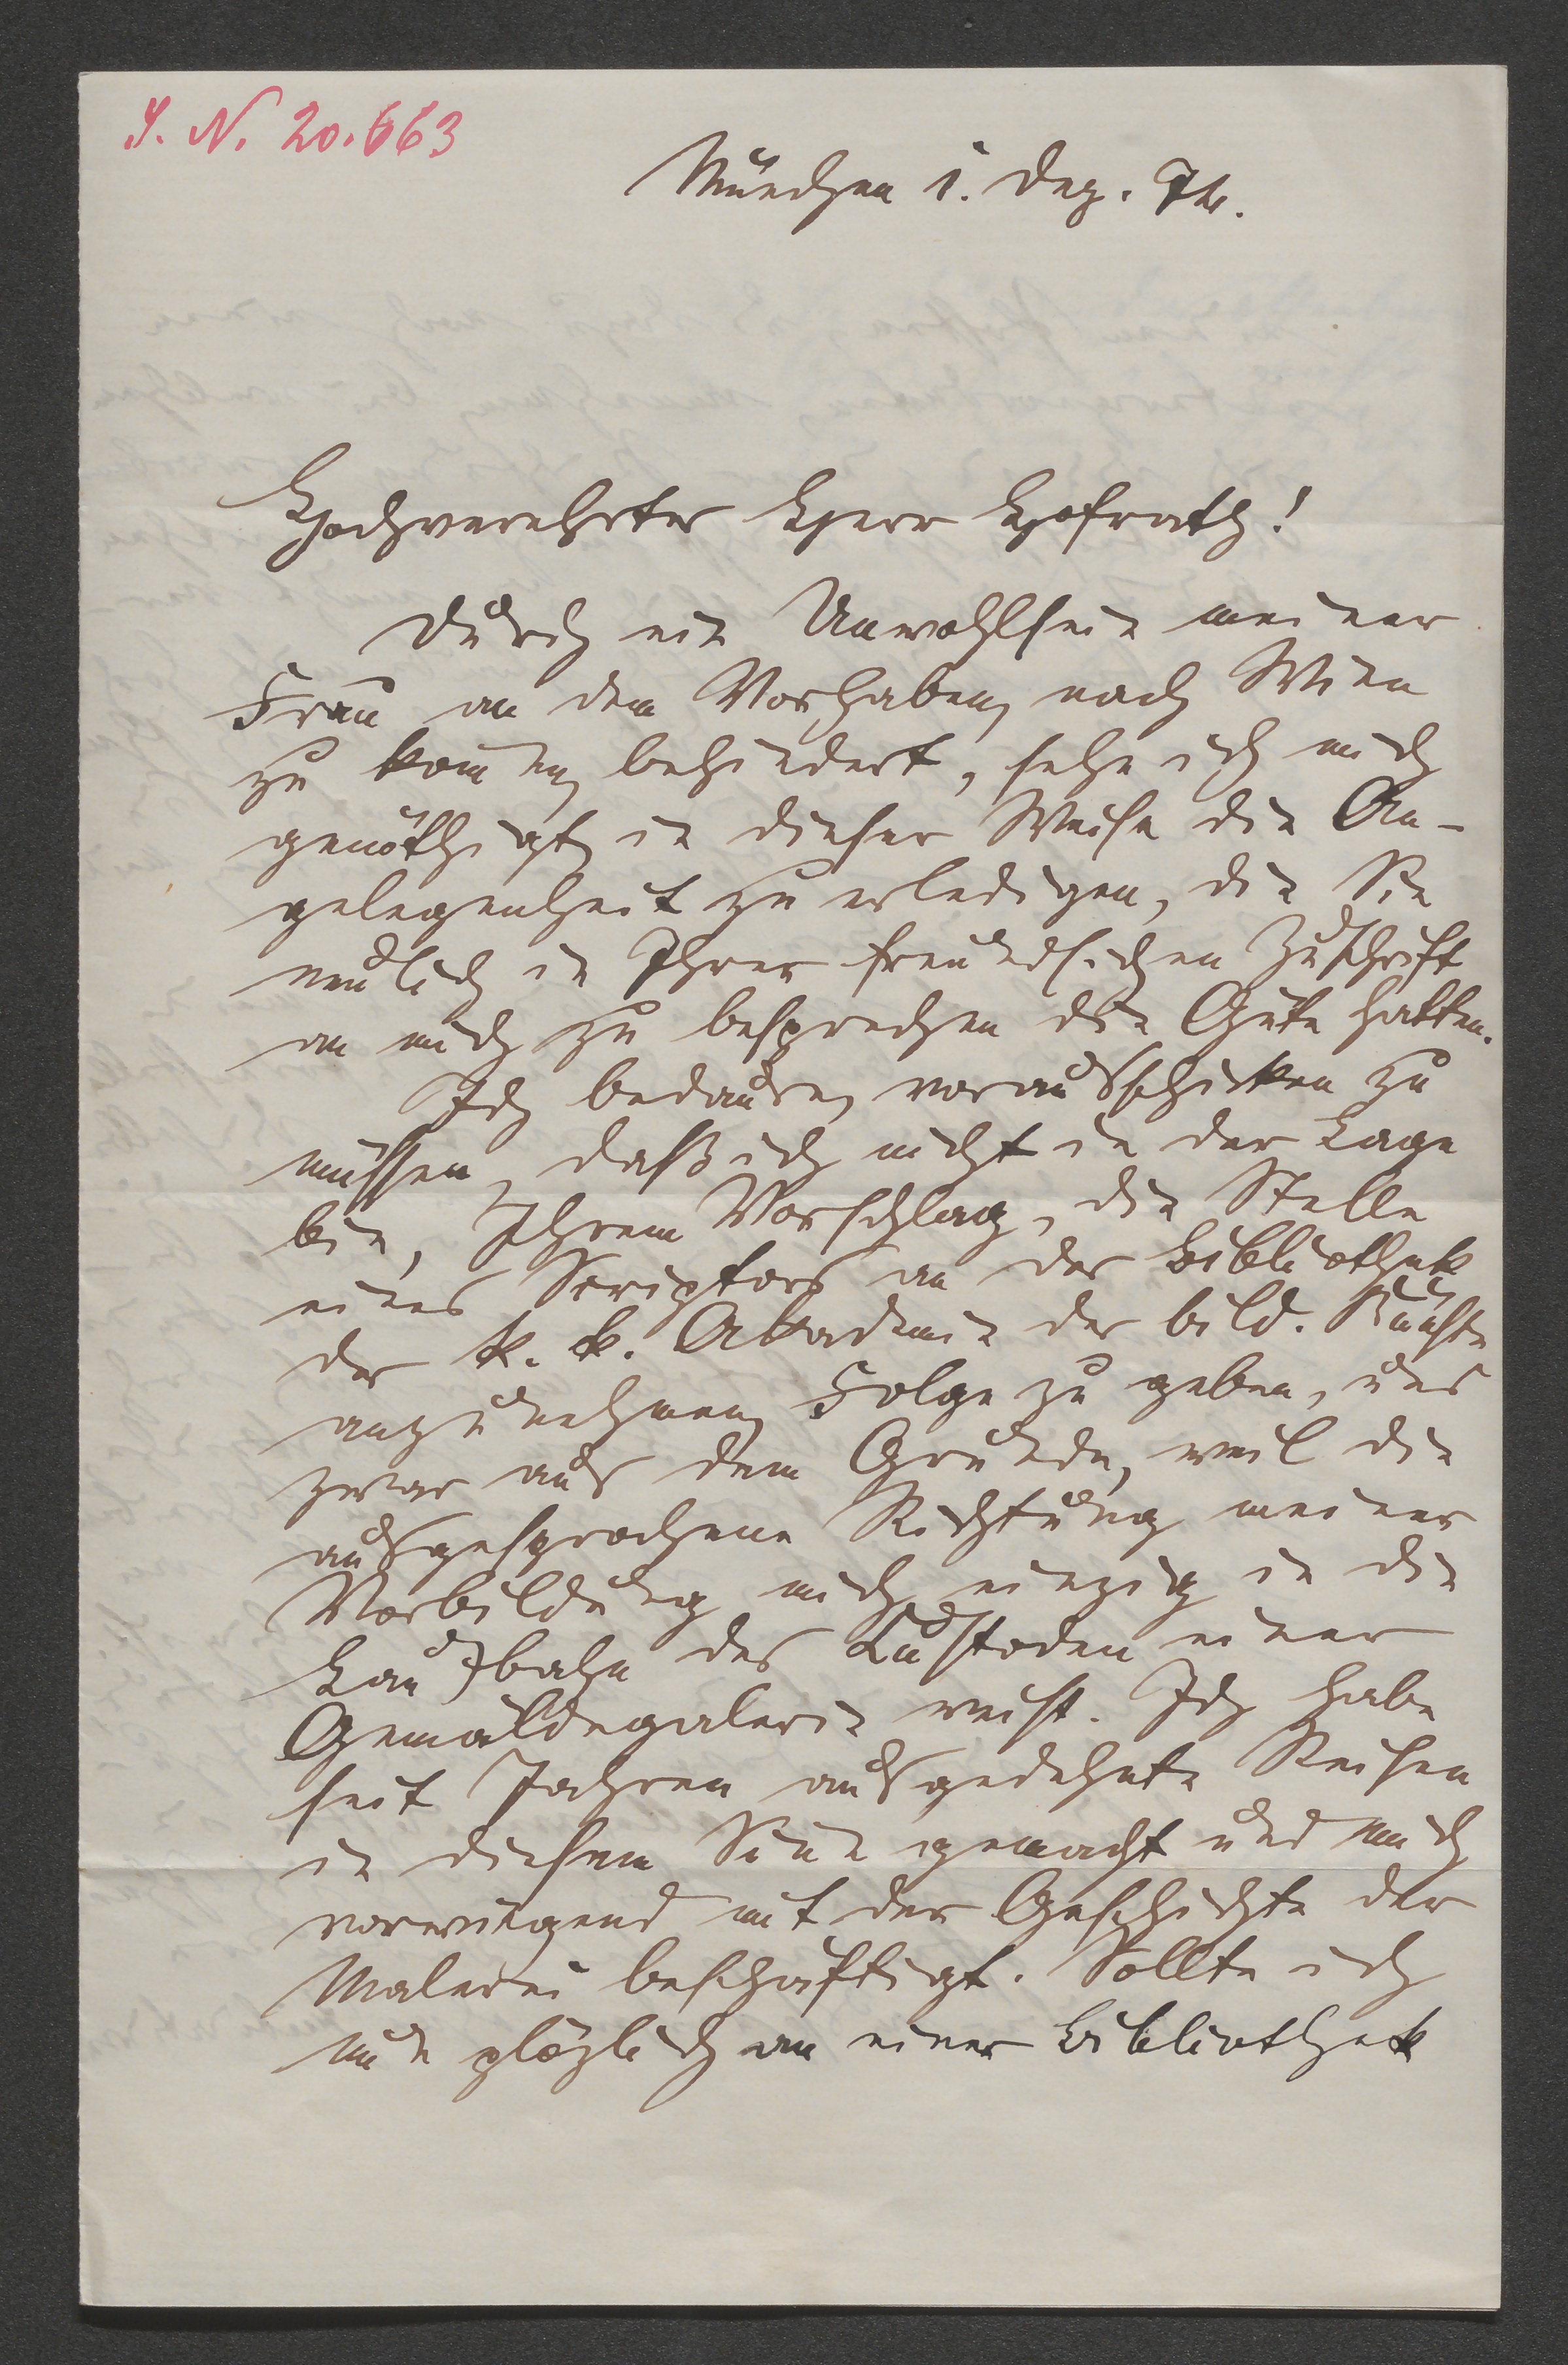 I. N. 20.663
München 1. Dez. 74.
Hochverehrter Herr Hofrath!
Durch ein Unwohlsein meiner
Frau an dem Vorhaben, nach Wien
zu kommen, behindert, sehe ich mich
genöthigt, in dieser Weise die An-
gelegenheit zu erledigen, die Sie
neulich in Ihrer freundlichen Zuschrift
an mich zu besprechen die Güte hatten.
Ich bedaure, vorausschicken zu
müssen, daß ich nicht in der Lage
bin, Ihrem Vorschlag, die Stelle
eines Scriptors an der Bibliothek
der k. k. Akademie der bild. Künste
anzunehmen, Folge zu geben, und
zwar aus dem Grunde, weil die
ausgesprochene Richtung meiner
Vorbildung mich einzig in die
Laufbahn des Kustoden einer
Gemäldegalerie weist. Ich habe
seit Jahren ausgedehnte Reisen
in diesem Sinne gemacht und mich
vorwiegend mit der Geschichte der
Malerei beschäftigt. Sollte ich
nun plözlich an einer Bibliothek